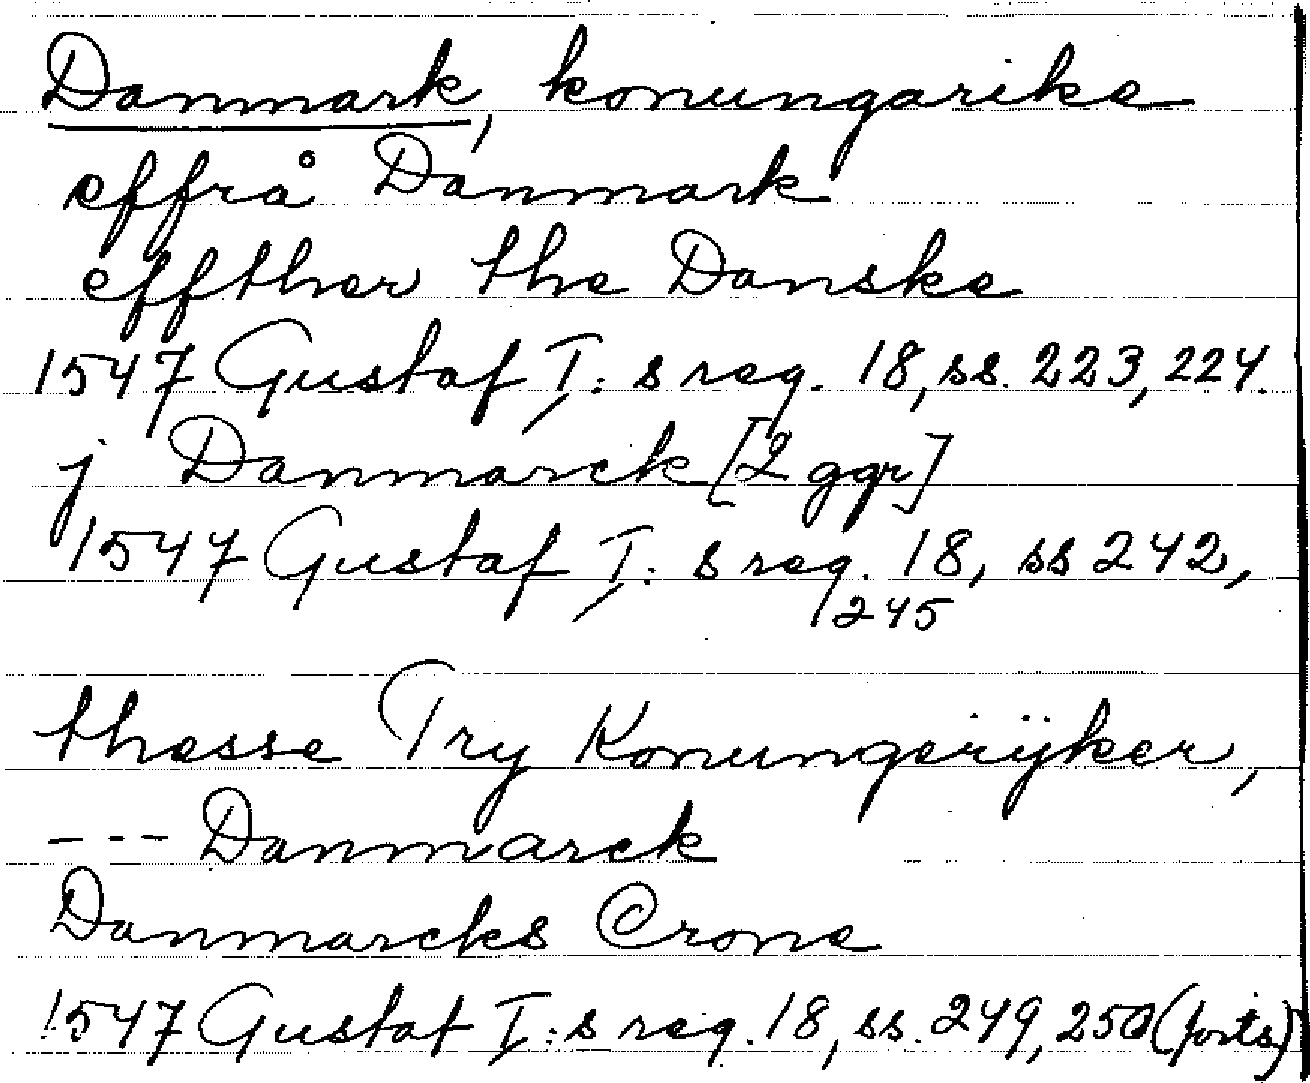 Danmark, konungarike
effrå Danmark
effther the Danske
1547 Gustaf I: s reg. 18, ss. 223, 224.
j Danmarck [2 ggr]
1547 Gustaf I: s reg. 18, ss 242,
245
thesse Try Konungerÿker,
--- Danmarck
Danmarcks Crone
1547 Gustaf I: s reg. 18, ss. 249, 250 (forts)